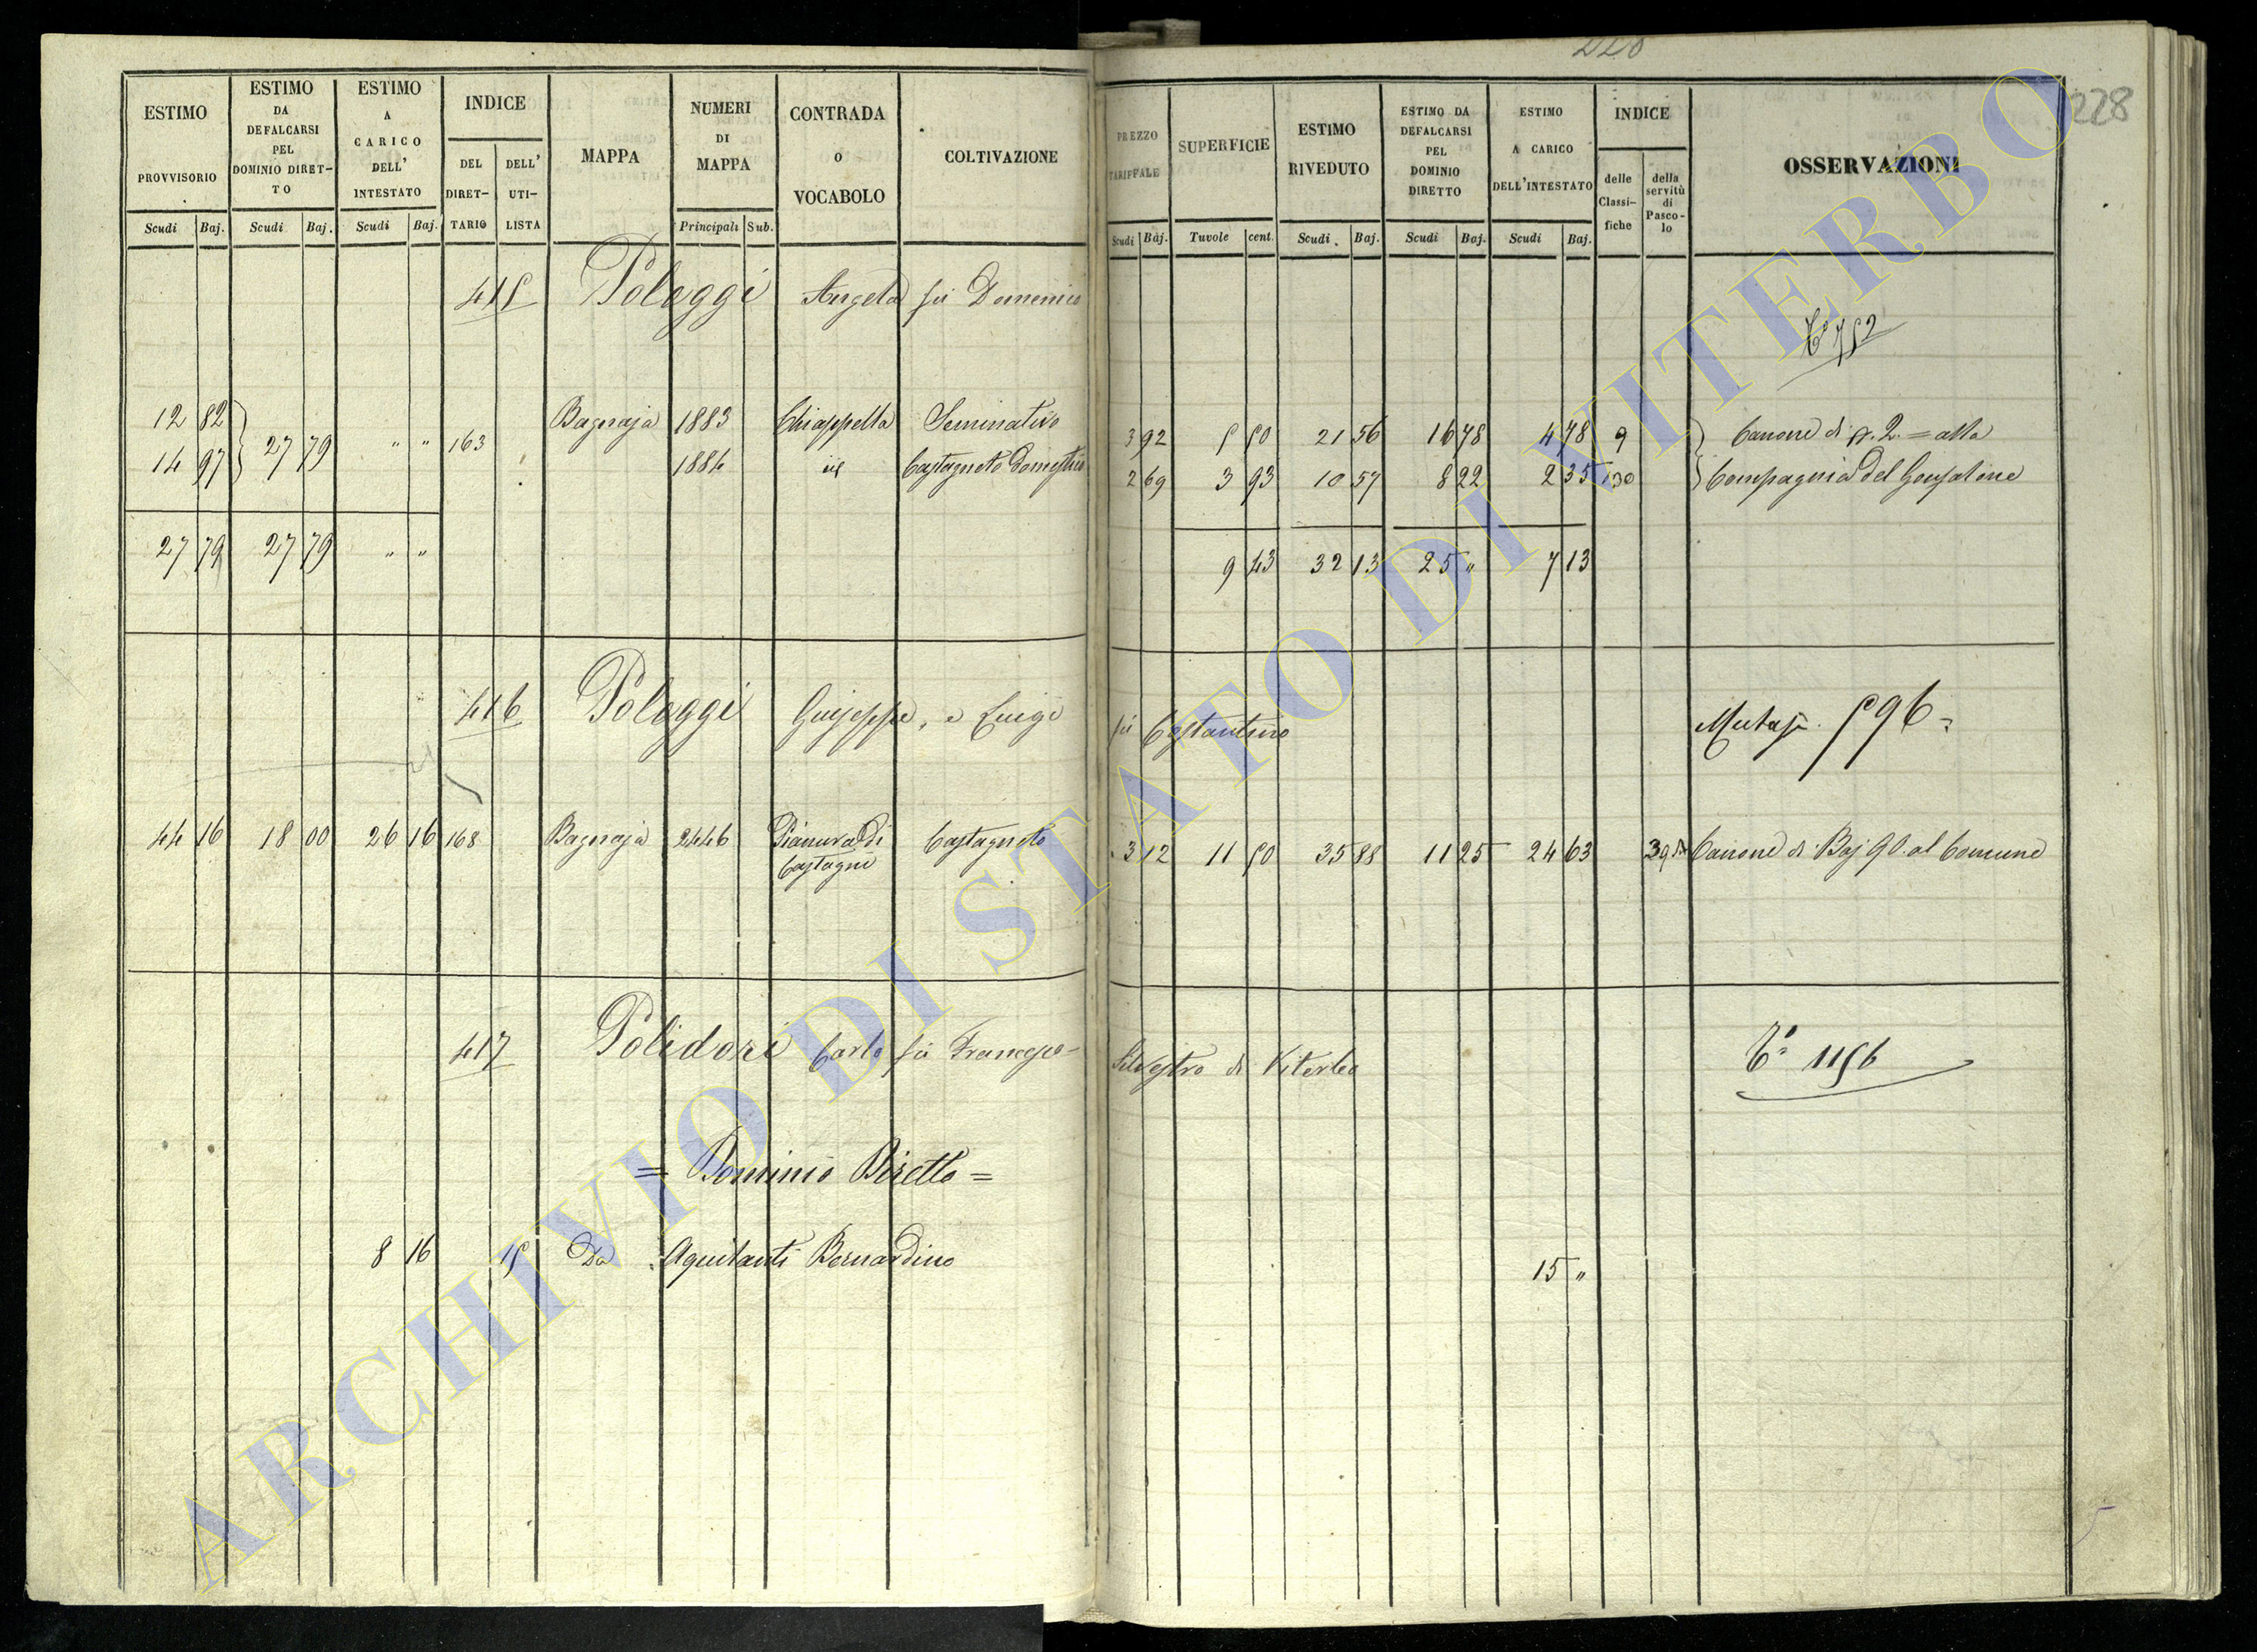 228
ESTIMO PROVVISORIO Scudi Baj.
ESTIMO DA DEFALCARSI PEL DOMINIO DIRETTO Scudi Baj.
ESTIMO A CARICO DELL' INTESTATO Scudi Baj.
INDICE DEL DIRETTARIO DELL' UTILISTA
MAPPA
NUMERI DI MAPPA Principali Sub.
CONTRADA O VOCABOLO
COLTIVAZIONE
PREZZO TARIFFALE Scudi Baj.
SUPERFICIE Tavole cent.
ESTIMO RIVEDUTO Scudi Baj.
ESTIMO DA DEFALCARSI PEL DOMINIO DIRETTO Scudi Baj.
ESTIMO A CARICO DELL'INTESTATO Scudi Baj.
INDICE delle Classifiche della servitù di Pascolo
OSSERVAZIONI
415 Polaggi Angela fù Domenico
Tº 752
12 82 Bagnaja 1883 Chiappetta Seminativo 3 92 5 50 21 56 16 78 4 78 9 Canone di s. 2 = alla
27 79 " " 163
14 97 1884 id Castagneto Domestico 2 69 3 93 10 57 8 22 2 35 130 Compagnia del Gonfalone
27 79 27 79 " " 9 43 32 13 25 " 7 13
416 Polaggi Giuseppe, e Luigi fù Costantino 596
44 16 18 00 26 16 168 Bagnaja 2446 Pianura di Castagneto 3 12 11 50 35 88 11 25 24 63 Canone di Baj 90 al Comune
Castagni
417 Polidori Carlo fù Francesco Silvestro di Viterbo Tº 1156
= Dominio Diretto =
8 16 15 Da Aquilanti Bernardino 15 "
ARCHIVIO DI STATO DI VITERBO